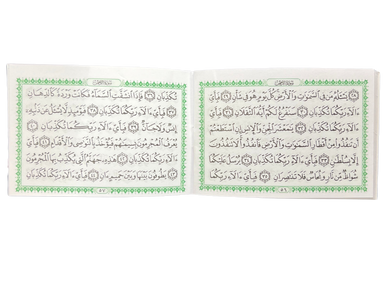 سورة الرحمن
﴿٢٨﴾ يَسْـَٔلُهُۥ مَن فِى ٱلسَّمَٰوَٰتِ وَٱلْأَرْضِ كُلَّ يَوْمٍ هُوَ فِى شَأْنٍ ﴿٢٩﴾ فَبِأَىِّ
ءَالَآءِ رَبِّكُمَا تُكَذِّبَانِ ﴿٣٠﴾ سَنَفْرُغُ لَكُمْ أَيُّهَ ٱلثَّقَلَانِ ﴿٣١﴾ فَبِأَىِّ
ءَالَآءِ رَبِّكُمَا تُكَذِّبَانِ ﴿٣٢﴾ يَٰمَعْشَرَ ٱلْجِنِّ وَٱلْإِنسِ إِنِ ٱسْتَطَعْتُمْ
أَن تَنفُذُوا۟ مِنْ أَقْطَارِ ٱلسَّمَٰوَٰتِ وَٱلْأَرْضِ فَٱنفُذُوا۟ لَا تَنفُذُونَ
إِلَّا بِسُلْطَٰنٍ ﴿٣٣﴾ فَبِأَىِّ ءَالَآءِ رَبِّكُمَا تُكَذِّبَانِ ﴿٣٤﴾ يُرْسَلُ عَلَيْكُمَا
شُوَاظٌ مِّن نَّارٍ وَنُحَاسٌ فَلَا تَنتَصِرَانِ ﴿٣٥﴾ فَبِأَىِّ ءَالَآءِ رَبِّكُمَا
٥٦
سورة الرحمن
تُكَذِّبَانِ ﴿٣٦﴾ فَإِذَا ٱنشَقَّتِ ٱلسَّمَآءُ فَكَانَتْ وَرْدَةً كَٱلدِّهَانِ
﴿٣٧﴾ فَبِأَىِّ ءَالَآءِ رَبِّكُمَا تُكَذِّبَانِ ﴿٣٨﴾ فَيَوْمَئِذٍ لَّا يُسْـَٔلُ عَن ذَنۢبِهِۦٓ
إِنسٌ وَلَا جَآنٌّ ﴿٣٩﴾ فَبِأَىِّ ءَالَآءِ رَبِّكُمَا تُكَذِّبَانِ ﴿٤٠﴾
يُعْرَفُ ٱلْمُجْرِمُونَ بِسِيمَٰهُمْ فَيُؤْخَذُ بِٱلنَّوَٰصِى وَٱلْأَقْدَامِ ﴿٤١﴾ فَبِأَىِّ
ءَالَآءِ رَبِّكُمَا تُكَذِّبَانِ ﴿٤٢﴾ هَٰذِهِۦ جَهَنَّمُ ٱلَّتِى يُكَذِّبُ بِهَا ٱلْمُجْرِمُونَ
﴿٤٣﴾ يَطُوفُونَ بَيْنَهَا وَبَيْنَ حَمِيمٍ ءَانٍ ﴿٤٤﴾ فَبِأَىِّ ءَالَآءِ رَبِّكُمَا تُكَذِّبَانِ
٥٧